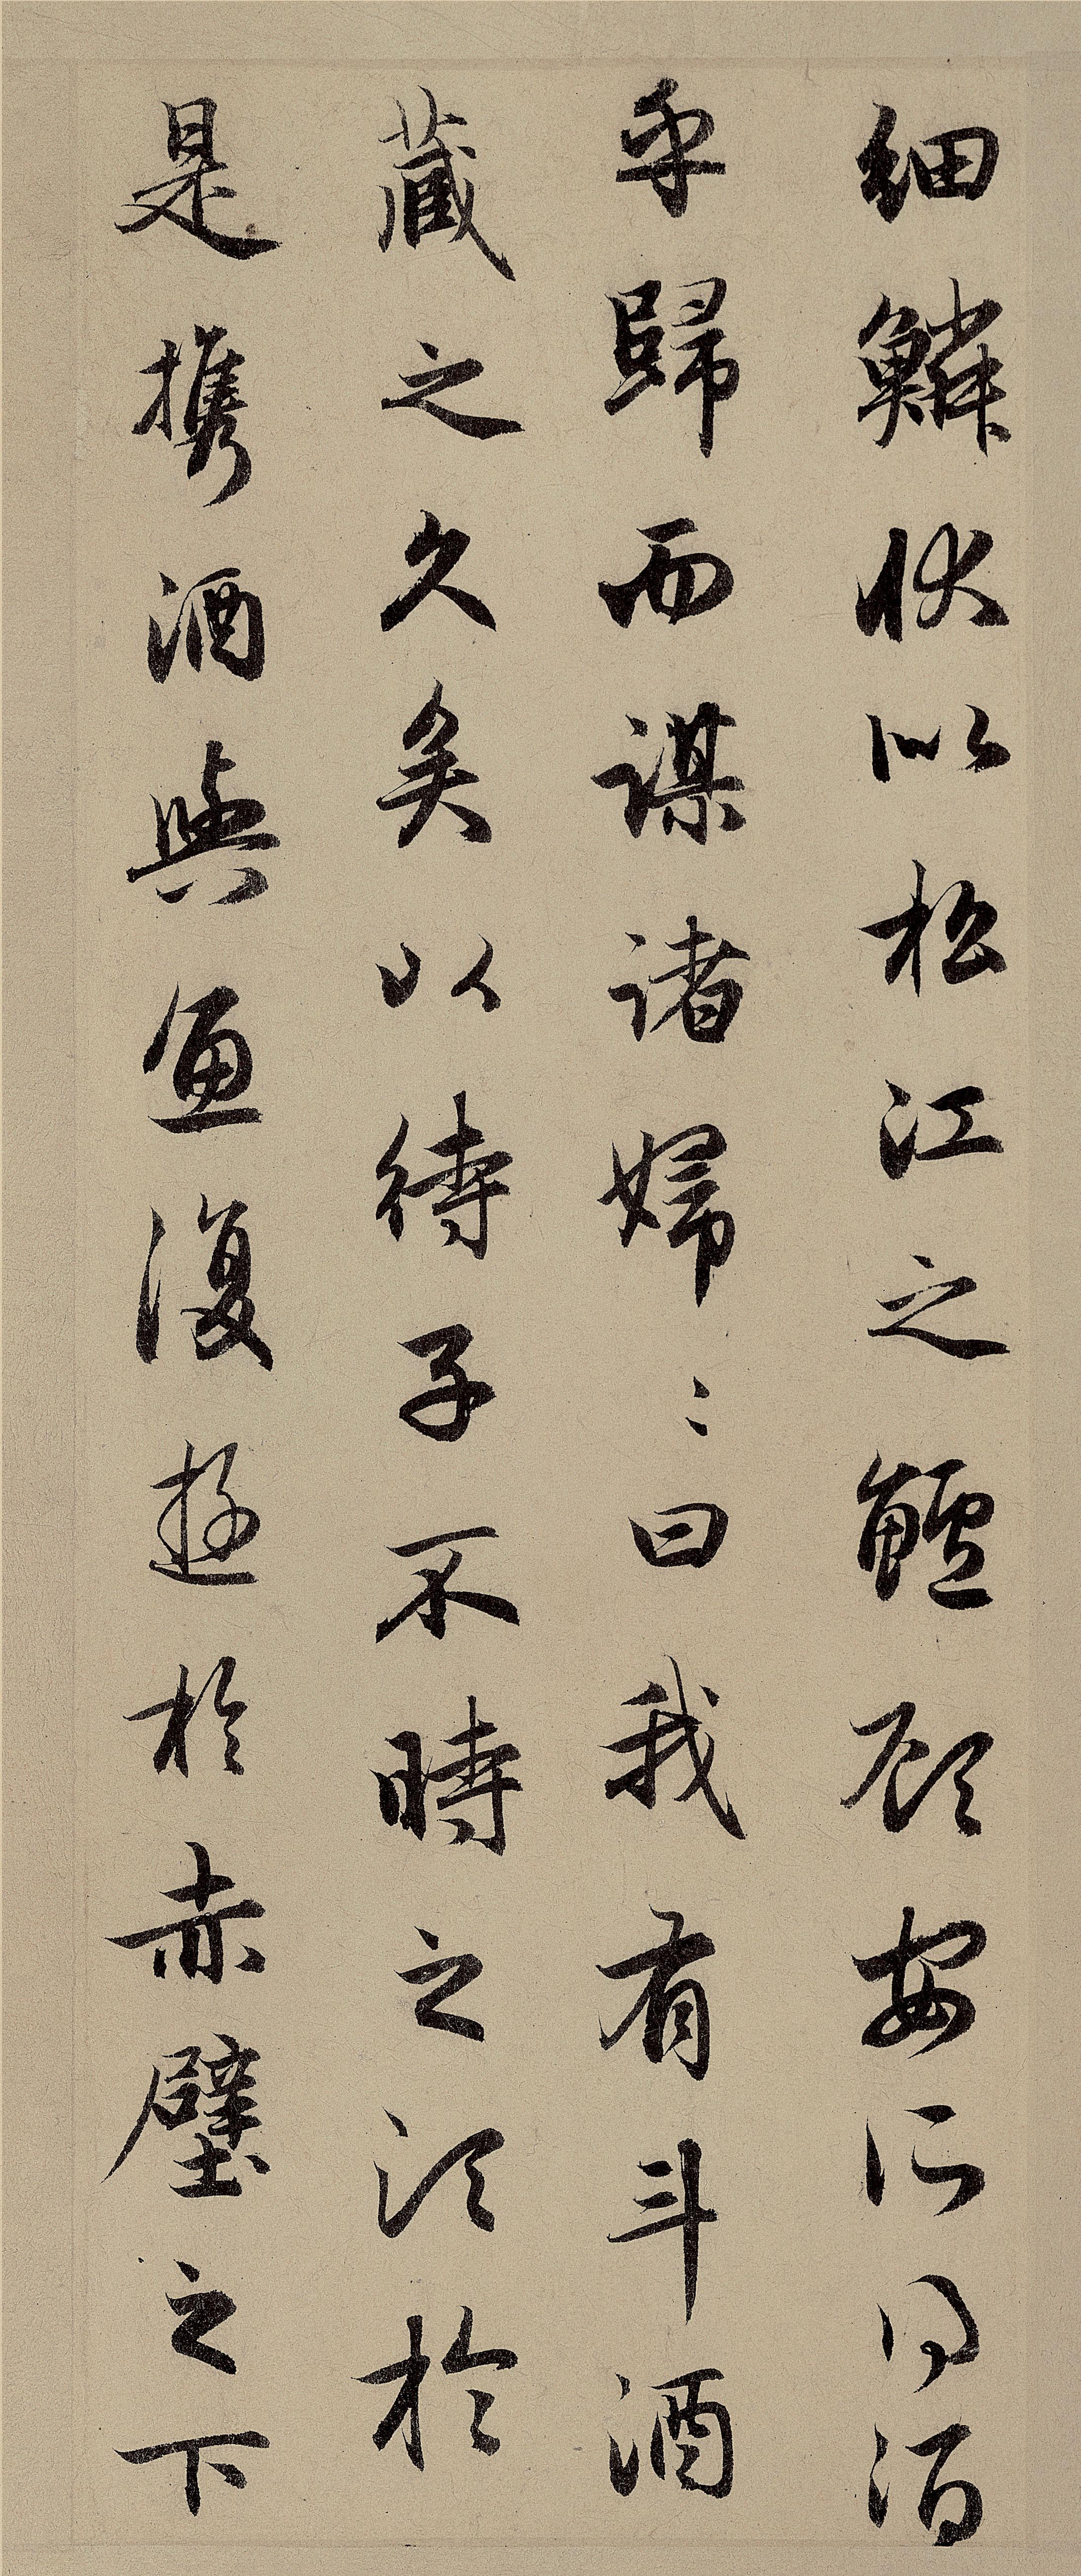 細鱗状似松江之鱸顧安所得酒
乎歸而謀諸婦〻曰我有斗酒
藏之久矣以待子不時之須於
是攜酒與魚復遊於赤壁之下